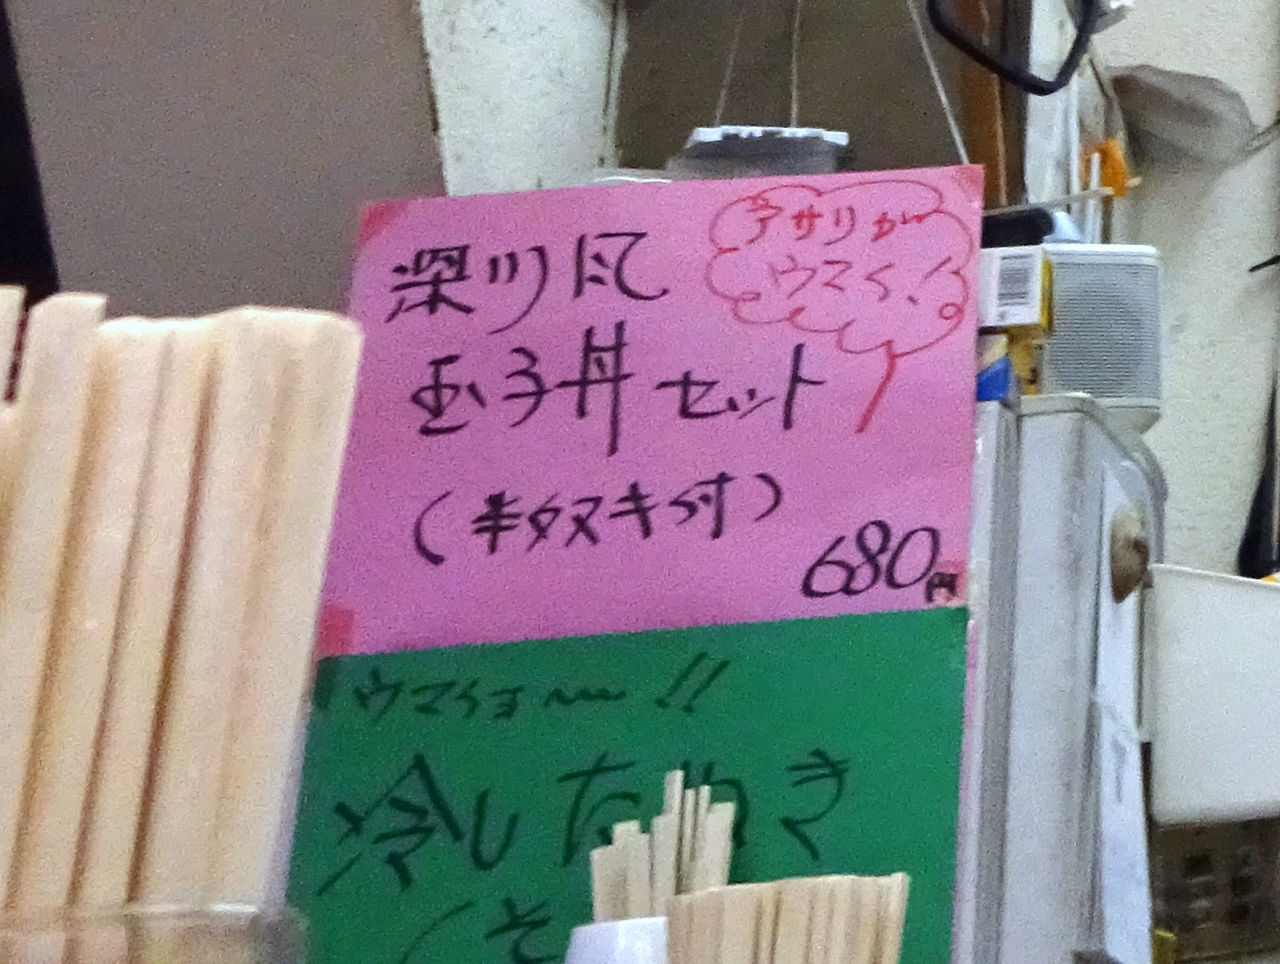 深川風
玉子丼セット
(半タヌキ付)
680円
アサリが
ウマイ!
ウマイヨ〜!!
冷したぬき
(そ